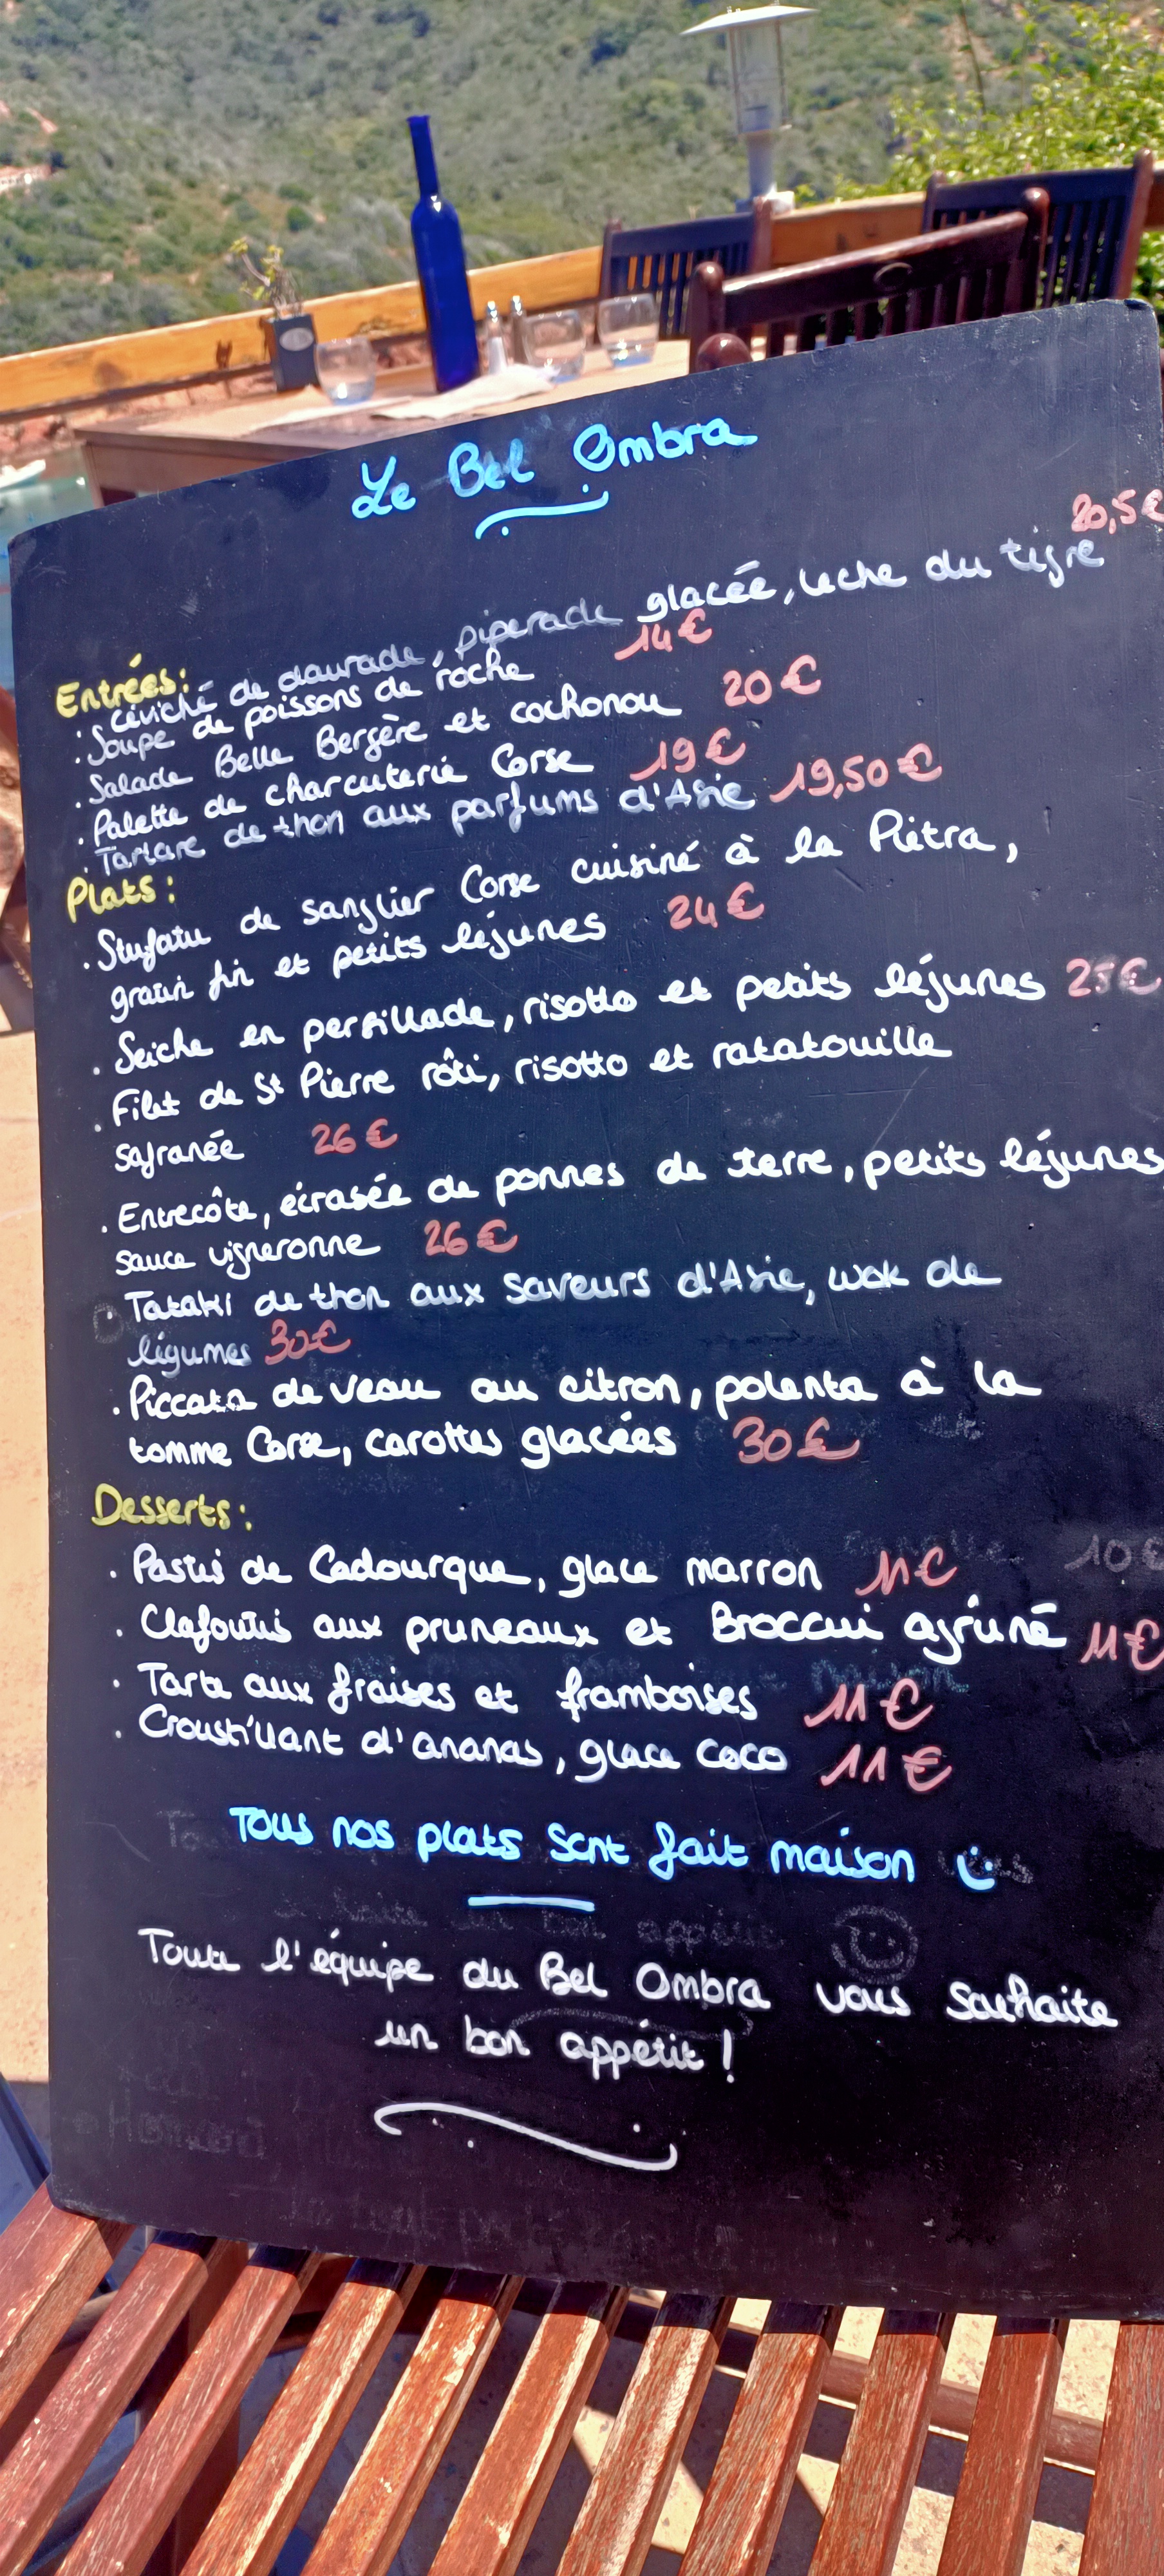 Le Bel Ombra
Entrées:
. Céviché de daurade, piperade glacée, leche du tigre 20,5€
. Soupe de poissons de roche 14€
. Salade Belle Bergère et cochonou 20€
. Palette de charcuterie Corse 19€
. Tartare de thon aux parfums d'Asie 19,50€
Plats:
. Stufatu de sanglier Corse cuisiné à la Piétra,
gratin fin et petits légumes 24€
. Seiche en persillade, risotto et petits légumes 25€
. Filet de St Pierre rôti, risotto et ratatouille
safranée 26€
. Entrecôte, écrasée de pommes de terre, petits légumes,
sauce vigneronne 26€
. Tataki de thon aux saveurs d'Asie, wok de
légumes 30€
. Piccata de veau au citron, polenta à la
tomme Corse, carottes glacées 30€
Desserts:
. Pastis de Cadourque, glace marron 11€
10€
. Clafoutis aux pruneaux et Brocciu agrumé 11€
. Tarte aux fraises et framboises 11€
. Croustillant d'ananas, glace coco 11€
Tous nos plats sont fait maison
Toute l'équipe du Bel Ombra vous souhaite
un bon appétit!